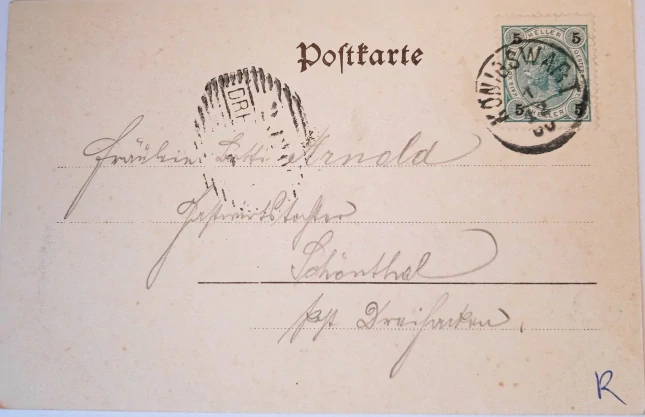 Postkarte
5 HELLER 5
5 HELLER 5
KÖNIGSWART
DRE
Fräulein Betti Arnold
Gastwirtstochter
Schönthal
Post Dreihacken.
R